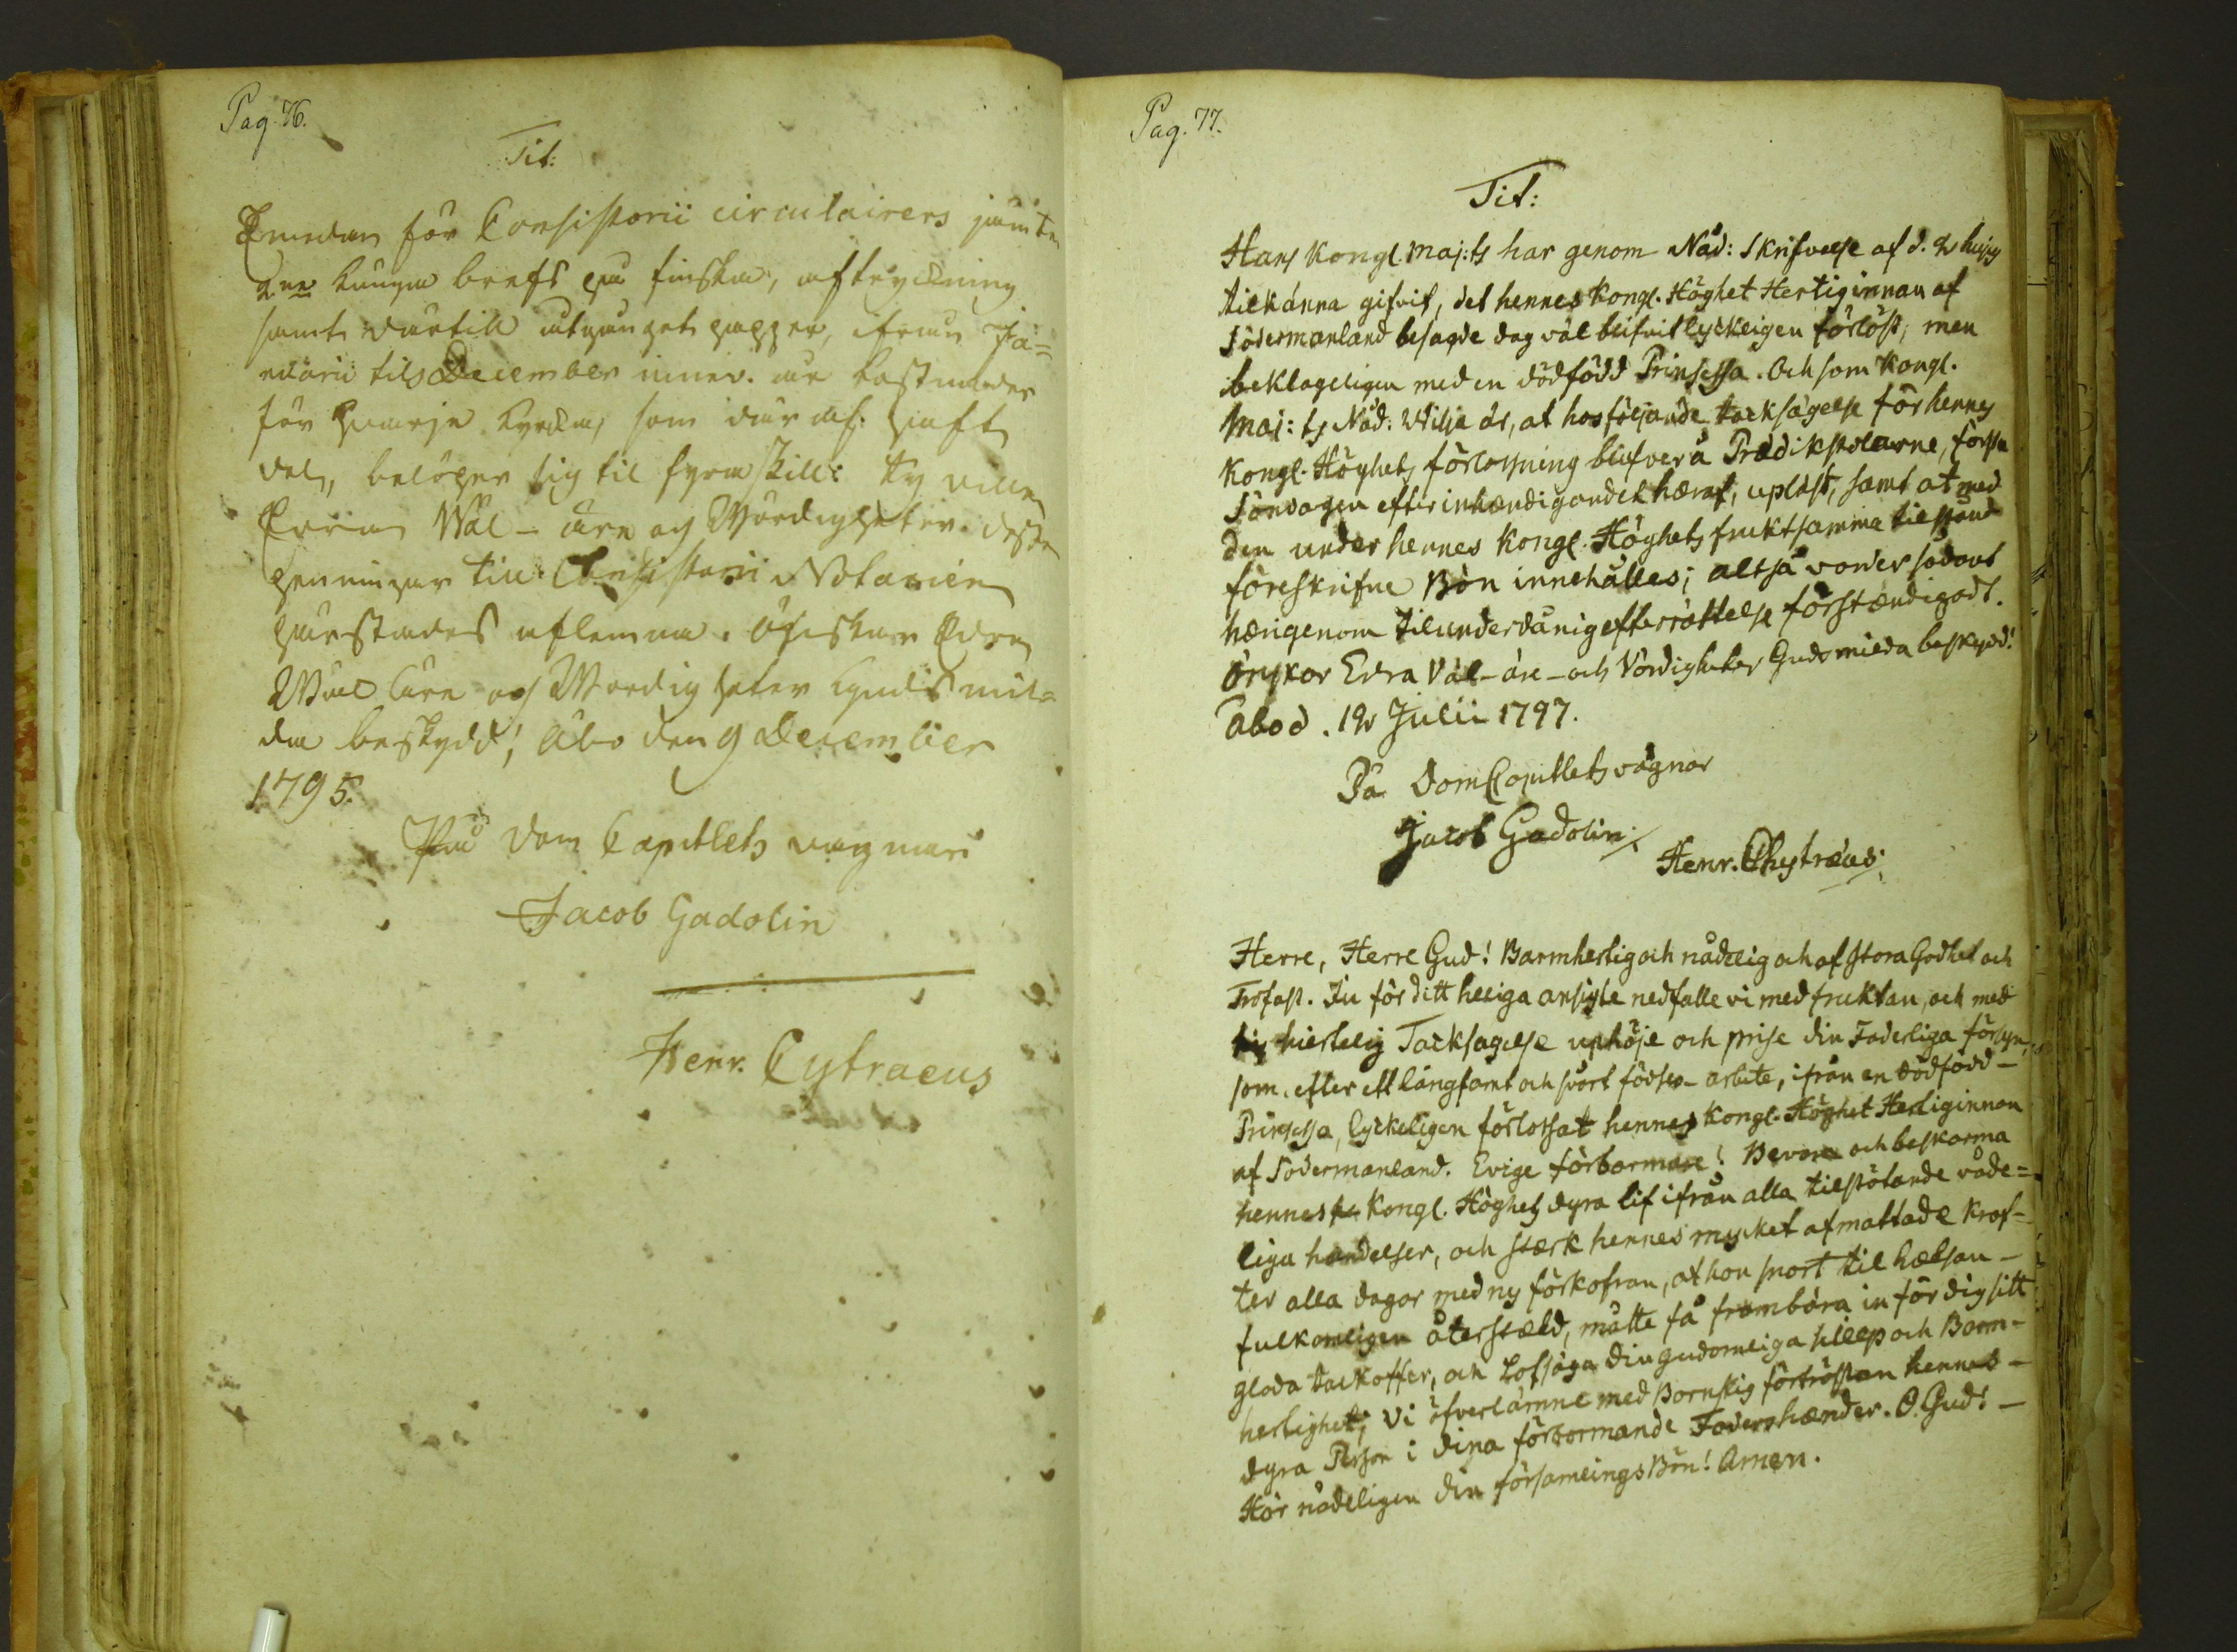 Pag. 76.
Tit:
Emedan för Consistorii circulairers jämte
2ne Kungm brefs på finska, aftryckning
samt därtill utgånget papper, ifrån Ja=
nuarii til December innev. år kostnaden
för hvarje Kyrka, som däraf haft
del, belöper sig til fyra skill: ty
Edra Wäl- ären och Wördigheter desse
penningar till Consistorii Notarien
aflemna. Önskar Edra
Wäl äre och Wördigheter Guds mil=
da beskydd! Åbo den 9 December
1795.
På Dom Capitlets vägnar
Jacob Gadolin
Henr. Cytraeus
Pag. 77.
Tit:
Hans Kongl. Maj:ts har genom Nåd: Skrifvelse af d. 2 hujus
tilkänna gifvit, det hennes Kongl. Höghet Hertiginnan af
Södermanland besagde dag väl blifvit lyckligen förlöst, men
beklageligen med en dödfödd Prinsessa. Och som Kongl.
Maj:ts Nåd: Wilja är, at hosföljande tacksägelse för hennes
Kongl. Höghets förlossning blifver å Prädikstolarne, första
Söndagen efter inhændigandet hæraf, uplæst, samt at med
den under hennes Kongl. Höghets fruktsamma tilstånd
föreskrifne Bön innehålles; altså varder sådant
hærigenom til underdånig efterrättelse förstændigadt.
Önskar Edra Väl- äre- och Vördigheter Guds milda beskydd!
Åbo d. 12 Julii 1797.
På DomCapitlets vägnar
Jacob Gadolin
Henr. Chytræus
Herre, Herre Gud! Barmhertig och nådelig och af stora Godhet och
Trofast. In för ditt heliga ansigte nedfalle vi med fruktan, och med
hiertelig Tacksägelse uphöje och prise din Faderliga försyn,
som, efter ett långsamt och svårt födslo- arbete, ifrån en dödfödd-
Prinsessa, lyckeligen förlossat hennes Kongl. Höghet Hertiginnan
af Södermanland. Evige förbarmare! Bevara och beskærma
hennes Kongl. Höghets dyra lif ifrån alla tilstötande våde=
liga händelser, och stærk hennes mycket afmattade kraf-
ter alla dagar med ny förkofran, at hon snart til hælsan-
fulkomligen återstæld, måtte få frambära in för dig sitt
glada tackoffer, och Lofsäga din gudomeliga hielp och Barm-
hertighet; Vi öfverlämne med Barnslig förtröstan hennes-
dyra Person i dina förbarmande Faders hænder. O. Gud! -
Hör nådeligen din församlings Bön! Amen.